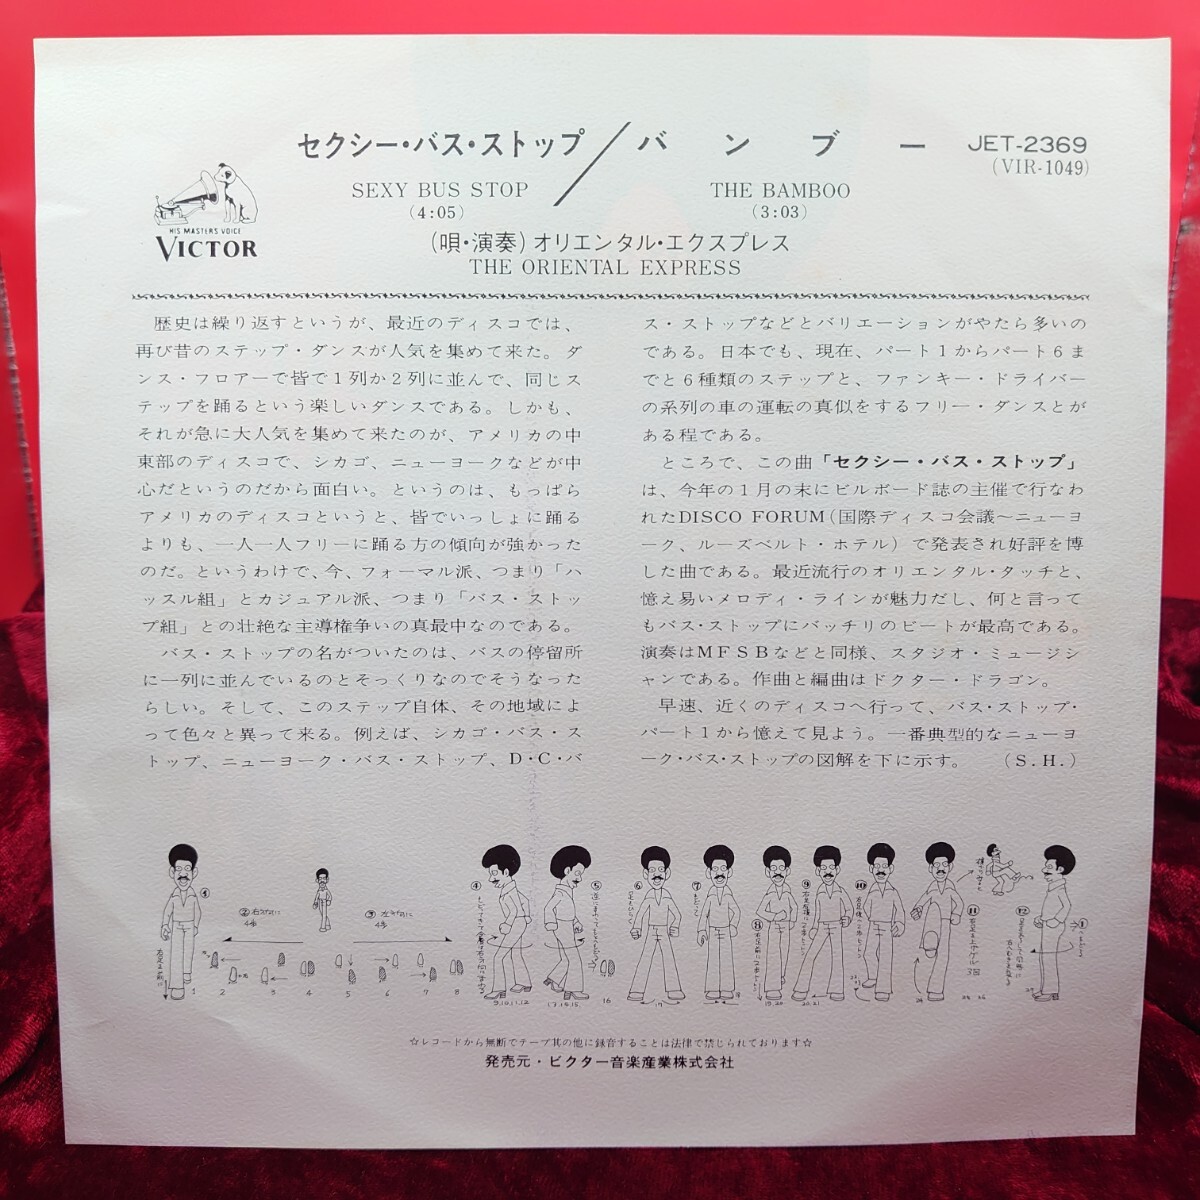 セクシー・バス・ストップ／バンブー
JET-2369
(VIR-1049)
SEXY BUS STOP
THE BAMBOO
(4:05)
(3:03)
HIS MASTER'S VOICE
VICTOR
(唄・演奏) オリエンタル・エクスプレス
THE ORIENTAL EXPRESS
歴史は繰り返すというが、最近のディスコでは、
再び昔のステップ・ダンスが人気を集めて来た。ダ
ンス・フロアーで皆で1列か2列に並んで、同じス
テップを踊るという楽しいダンスである。しかも、
それが急に大人気を集めて来たのが、アメリカの中
東部のディスコで、シカゴ、ニューヨークなどが中
心だというのだから面白い。というのは、もっぱら
アメリカのディスコというと、皆でいっしょに踊る
よりも、一人一人フリーに踊る方の傾向が強かった
のだ。というわけで、今、フォーマル派、つまり「ハ
ッスル組」とカジュアル派、つまり「バス・ストッ
プ組」との壮絶な主導権争いの真最中なのである。
バス・ストップの名がついたのは、バスの停留所
に一列に並んでいるのとそっくりなのでそうなった
らしい。そして、このステップ自体、その地域によ
って色々と異って来る。例えば、シカゴ・バス・ス
トップ、ニューヨーク・バス・ストップ、D・C・バ
ス・ストップなどとバリエーションがやたら多いの
である。日本でも、現在、パート1からパート6ま
でと6種類のステップと、ファンキー・ドライバー
の系列の車の運転の真似をするフリー・ダンスとが
ある程である。
ところで、この曲「セクシー・バス・ストップ」
は、今年の1月の末にビルボード誌の主催で行なわ
れたDISCO FORUM(国際ディスコ会議～ニューヨ
ーク、ルーズベルト・ホテル)で発表され好評を博
した曲である。最近流行のオリエンタル・タッチと、
憶え易いメロディ・ラインが魅力だし、何と言って
もバス・ストップにバッチリのビートが最高である。
演奏はMFSBなどと同様、スタジオ・ミュージシ
ャンである。作曲と編曲はドクター・ドラゴン。
早速、近くのディスコへ行って、バス・ストップ・
パート1から憶えて見よう。一番典型的なニューヨ
ーク・バス・ストップの図解を下に示す。 (S.H.)
② 右ナナメに
4歩
③ 左ナナメに
4歩
1 2 3 4 5 6 7 8
9.10.11.12
13.14.15.
16
☆レコードから無断でテープ其の他に録音することは法律で禁じられております☆
発売元・ビクター音楽産業株式会社